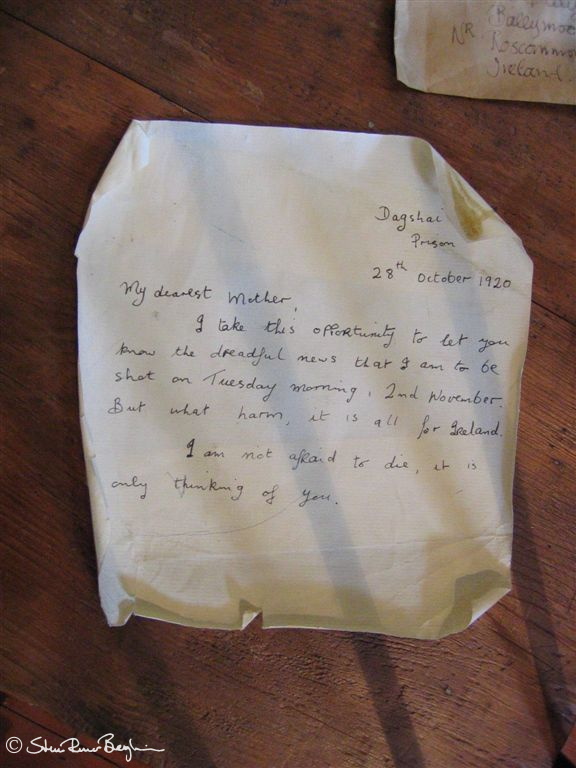 Ballymo
Nr. Roscommo
Ireland.
Dagshai
Prison
28th October 1920
My dearest Mother,
I take this opportunity to let you
know the dreadful news that I am to be
shot on Tuesday morning, 2nd November.
But what harm, it is all for Ireland.
I am not afraid to die, it is
only thinking of you.
©